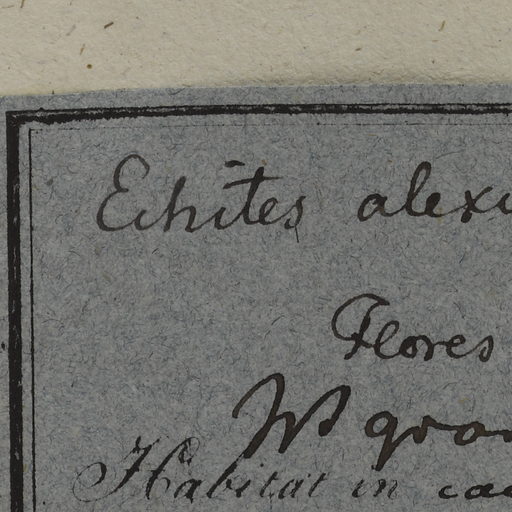 Echites alexi
Flores
Habitat in